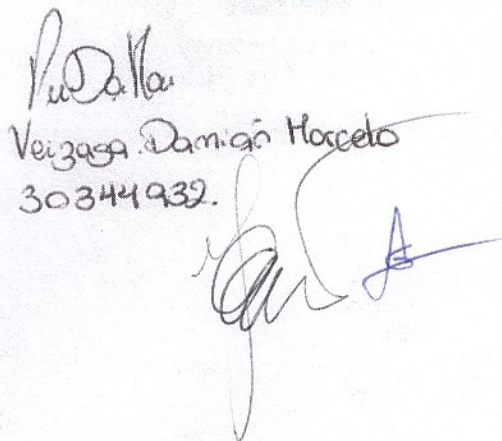 Veizaga Damián Marcelo
30344932.